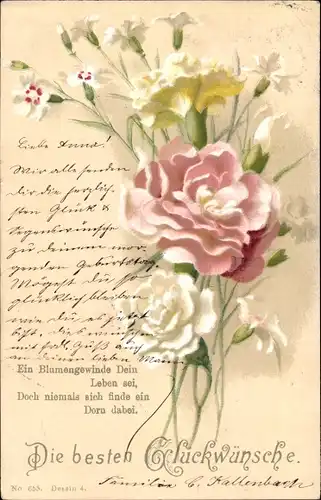 Liebe Anna!
Wir alle senden
dir die herzlich-
sten Glück &
Segenswünsche
zu deinem mor-
genden Geburtstag.
Mögest du so
glücklich bleiben
wie du es jetzt
bist. Dies wünschen
mit Gruß auch
an deinen lieben Mann
Ein Blumengewinde Dein
Leben sei,
Doch niemals sich finde ein
Dorn dabei.
Die besten Glückwünsche.
No. 655. Dessin 4.
Familie C. Kallenbach